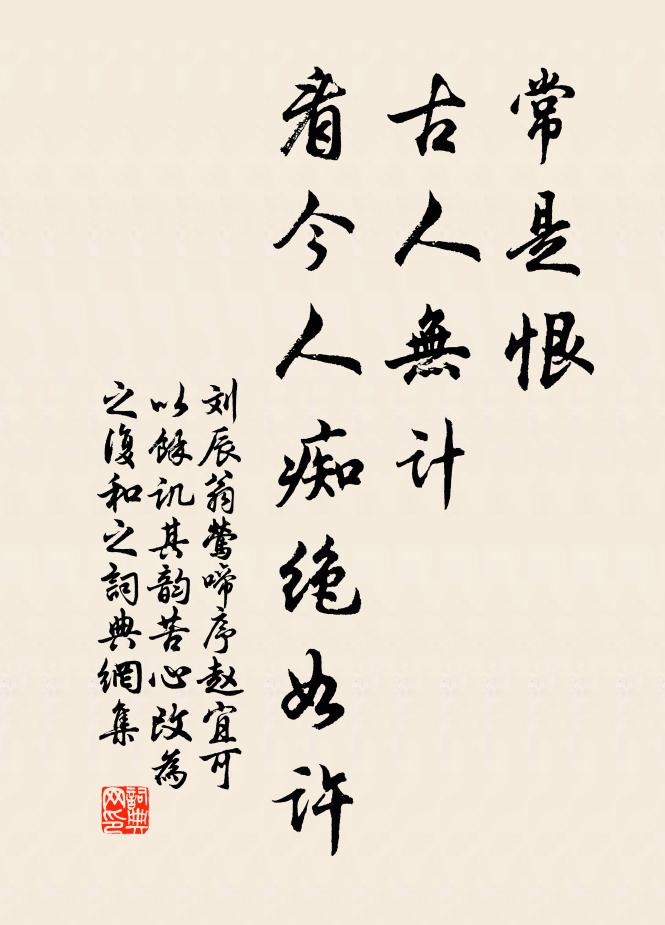 常是恨
古人無計
看今人痴绝如许
刘辰翁莺啼序赵宜可
以馀讥其韵苦心改為
之復和之詞典網集
詞典
网印